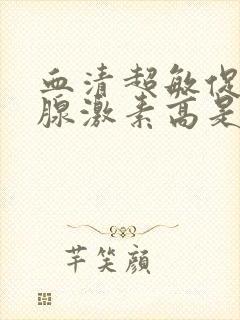 血清超敏促
腺激素高是
芊笑顔